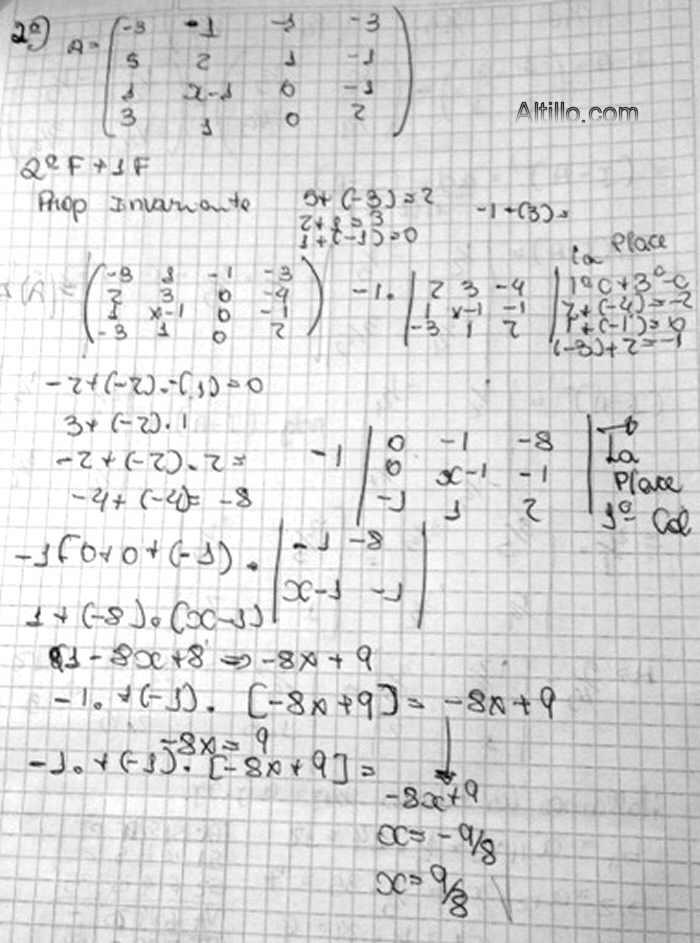 2º) A = ( -3 -1 -1 -3
5 2 1 -1
1 x-1 0 -1
3 1 0 2 )
Altillo.com
2º F + 1F
Prop Invariante
5+(-3)=2
2+1=3
1+(-1)=0
-1+(3)=
la Place
( -3 1 -1 -3
2 3 0 -4
1 x-1 0 -1
-3 1 0 2 )
-1. | 2 3 -4
1 x-1 -1
-3 1 2 |
2+(-4)=-2
1+(-1)=0
(-3)+2=-1
-2+(-2).-(1)=0
3+(-2).1
-2+(-2).2=
-4+(-4)=-8
-1 | 0 -1 -8
0 x-1 -1
-1 1 2 |
La
Place
1ª Col
-1[0+0+(-1). | -1 -8
x-1 -1 |
1+(-8).(x-1)
1-8x+8 => -8x+9
-1.+(-1). [-8x+9] = -8x+9
-8x = 9
-1.+(-1).[-8x+9] =
-8x+9
x=-9/8
x=9/8